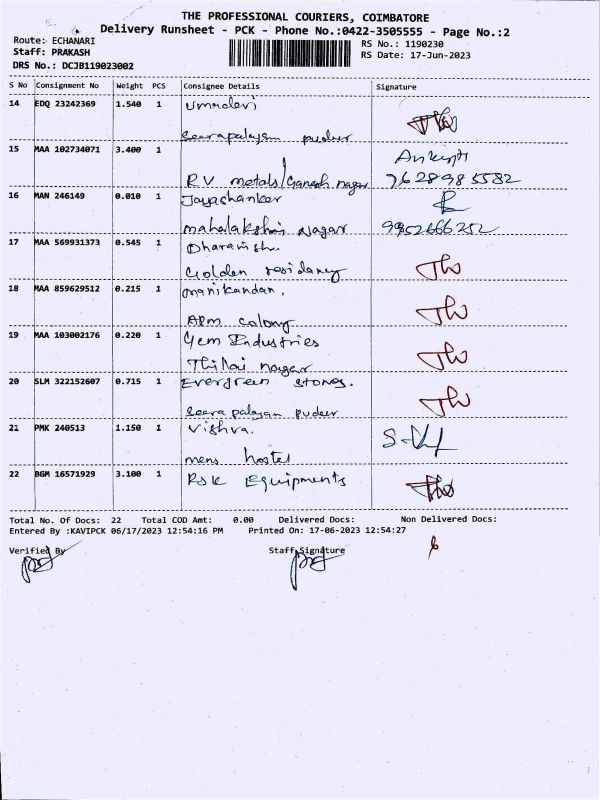 THE PROFESSIONAL COURIERS, COIMBATORE
Delivery Runsheet - PCK - Phone No.:0422-3505555 - Page No.:2
Route: ECHANARI
RS No.: 1190230
Staff: PRAKASH
RS Date: 17-Jun-2023
DRS No.: DCJB119023002
S No Consignment No Weight PCS Consignee Details Signature
14 EDQ 23242369 1.540 1 Umadevi
Seerapalayam pudur
15 MAA 102734071 3.400 1
RV metals/Ganesh nagar 7628985582
16 MAN 246149 0.010 1 Jayashankar
mahalakshmi Nagar 9952666252
17 MAA 569931373 0.545 1
Golden residency
18 MAA 859629512 0.215 1 Manikandan.
colony
19 MAA 103002176 0.220 1 Gem Industries
Thillai nagar
20 SLM 322152607 0.715 1 Evergreen stones.
Seerapalayam pudur
21 PMK 240513 1.150 1 Vishva.
mens hostel
22 BGM 16571929 3.100 1 RSK Equipments
Total No. Of Docs: 22 Total COD Amt: 0.00 Delivered Docs: Non Delivered Docs:
Entered By :KAVIPCK 06/17/2023 12:54:16 PM Printed On: 17-06-2023 12:54:27
Verified By Staff Signature